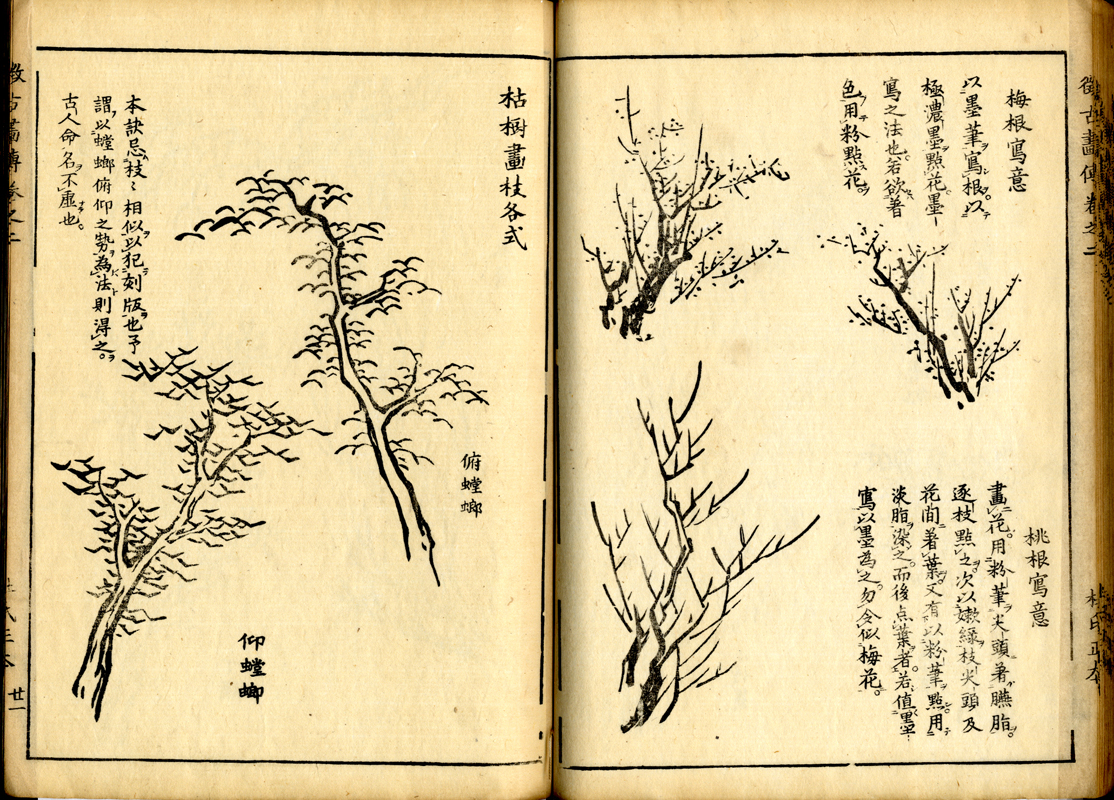 梅根寫意
以墨筆寫根以
極濃墨點花墨
寫之法也若欲著
色用粉點花
桃根寫意
畫花用粉筆尖頭著臙脂
逐枝點之次以嫩綠枝尖頭及
花間著葉又有以粉筆點用
淡脂染之而後点葉者若值墨
寫以墨為之勿令似梅花。
枯樹畫枝各式
俯螳螂
仰螳螂
本訣忌枝〻相似以犯刻版也予
謂以螳螂俯仰之勢為法則得之。
古人命名不虛也。
廿一